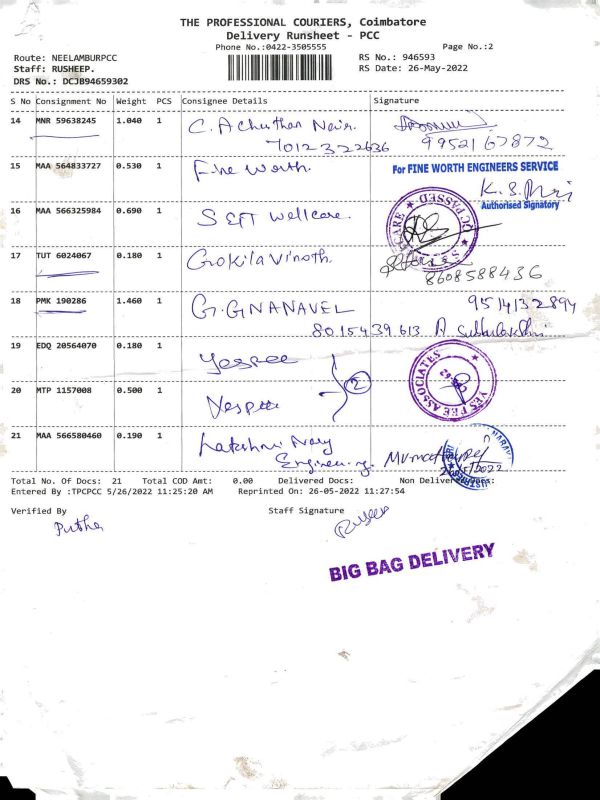 THE PROFESSIONAL COURIERS, Coimbatore
Delivery Runsheet - PCC
Phone No.:0422-3505555
Page No.:2
Route: NEELAMBURPCC
RS No.: 946593
Staff: RUSHEEP.
RS Date: 26-May-2022
DRS No.: DCJ894659302
S No Consignment No Weight PCS Consignee Details Signature
14 MNR 59638245 1.040 1 C. Achuthan Nair.
7012322636 9952167872
15 MAA 564833727 0.530 1 Fine worth. For FINE WORTH ENGINEERS SERVICE
Authorised Signatory
16 MAA 566325984 0.690 1 SEFT wellcare. QC PASSED
17 TUT 6024067 0.180 1 Gokila Vinoth.
8608588436
18 PMK 190286 1.460 1 G. GNANAVEL 9514132894
8015439613
19 EDQ 20564070 0.180 1 Yespee YES PEE ASSOCIATES
20 MTP 1157008 0.500 1 Yespee 2
21 MAA 566580460 0.190 1 Lakshmi
Engineering.
Total No. Of Docs: 21 Total COD Amt: 0.00 Delivered Docs: Non Delivered Docs:
Entered By :TPCPCC 5/26/2022 11:25:20 AM Reprinted On: 26-05-2022 11:27:54
Verified By Staff Signature
Rusheep
BIG BAG DELIVERY